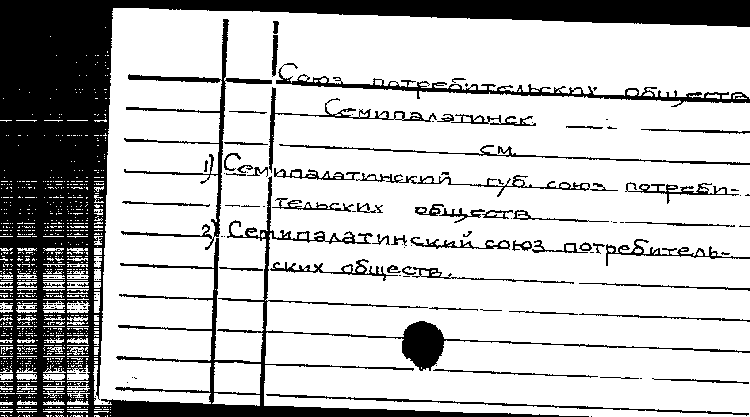 Союз потребительских обществ
Семипалатинск.
см.
1) Семипалатинский губ. союз потреби-
тельских обществ
2) Семипалатинский союз потребитель-
ских обществ.